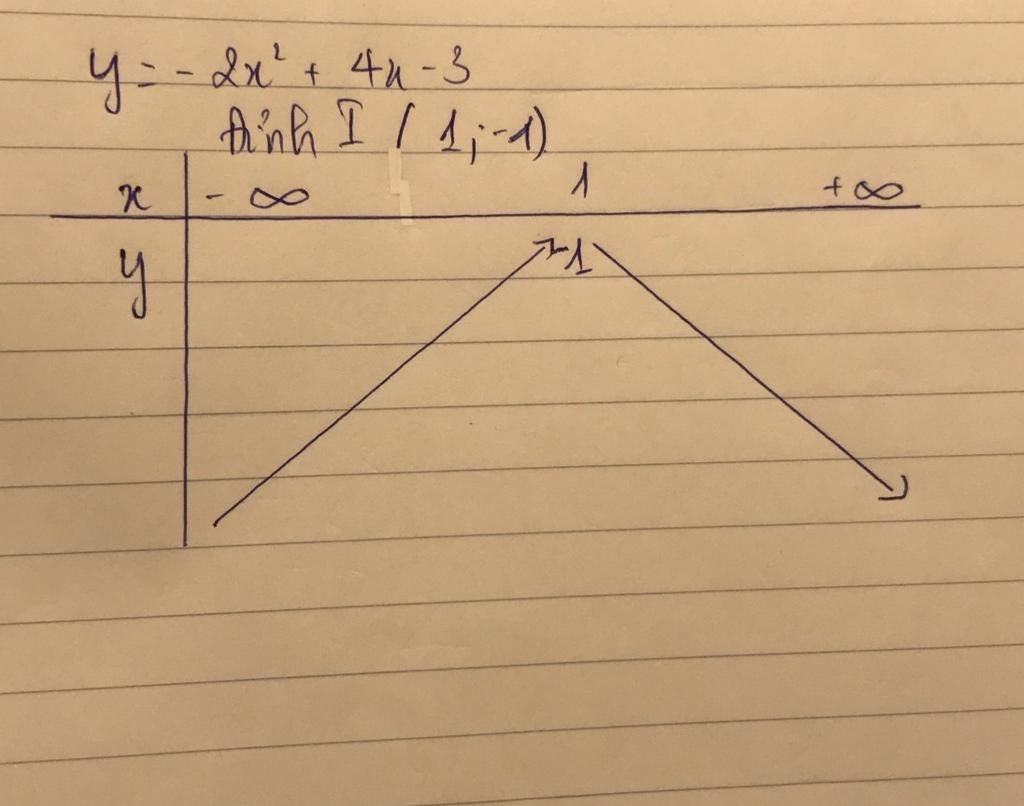 y = - 2x² + 4x - 3
Đỉnh I ( 1 ; -1)
x - ∞ 1 + ∞
y -1